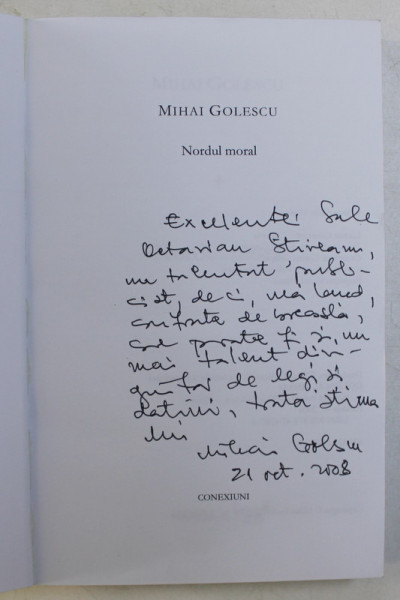 MIHAI GOLESCU
Nordul moral
Excelenței Sale
Octavian Știreanu,
un talentat publi-
cist, deci,
de breaslă,
care poate fi și un
mai talent
de legi și
datini, toată stima
lui
Mihai Golescu
21 oct. 2008
CONEXIUNI